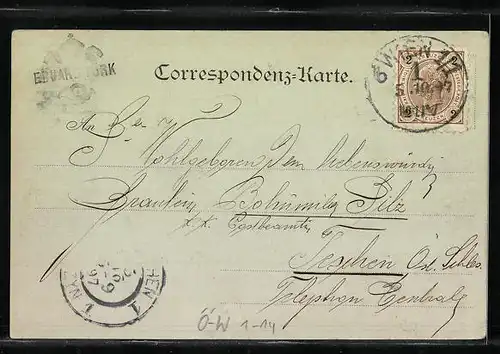 EDUARD
Correspondenz-Karte.
WIEN 1/1
An
Wohlgeboren dem liebenswürdigen
Fräulein Bohumila Pilz
K.K. Postbeamtin
Teschen Öst. Schles.
Telephon Central
97
HEN 1
Ö-W 1-14